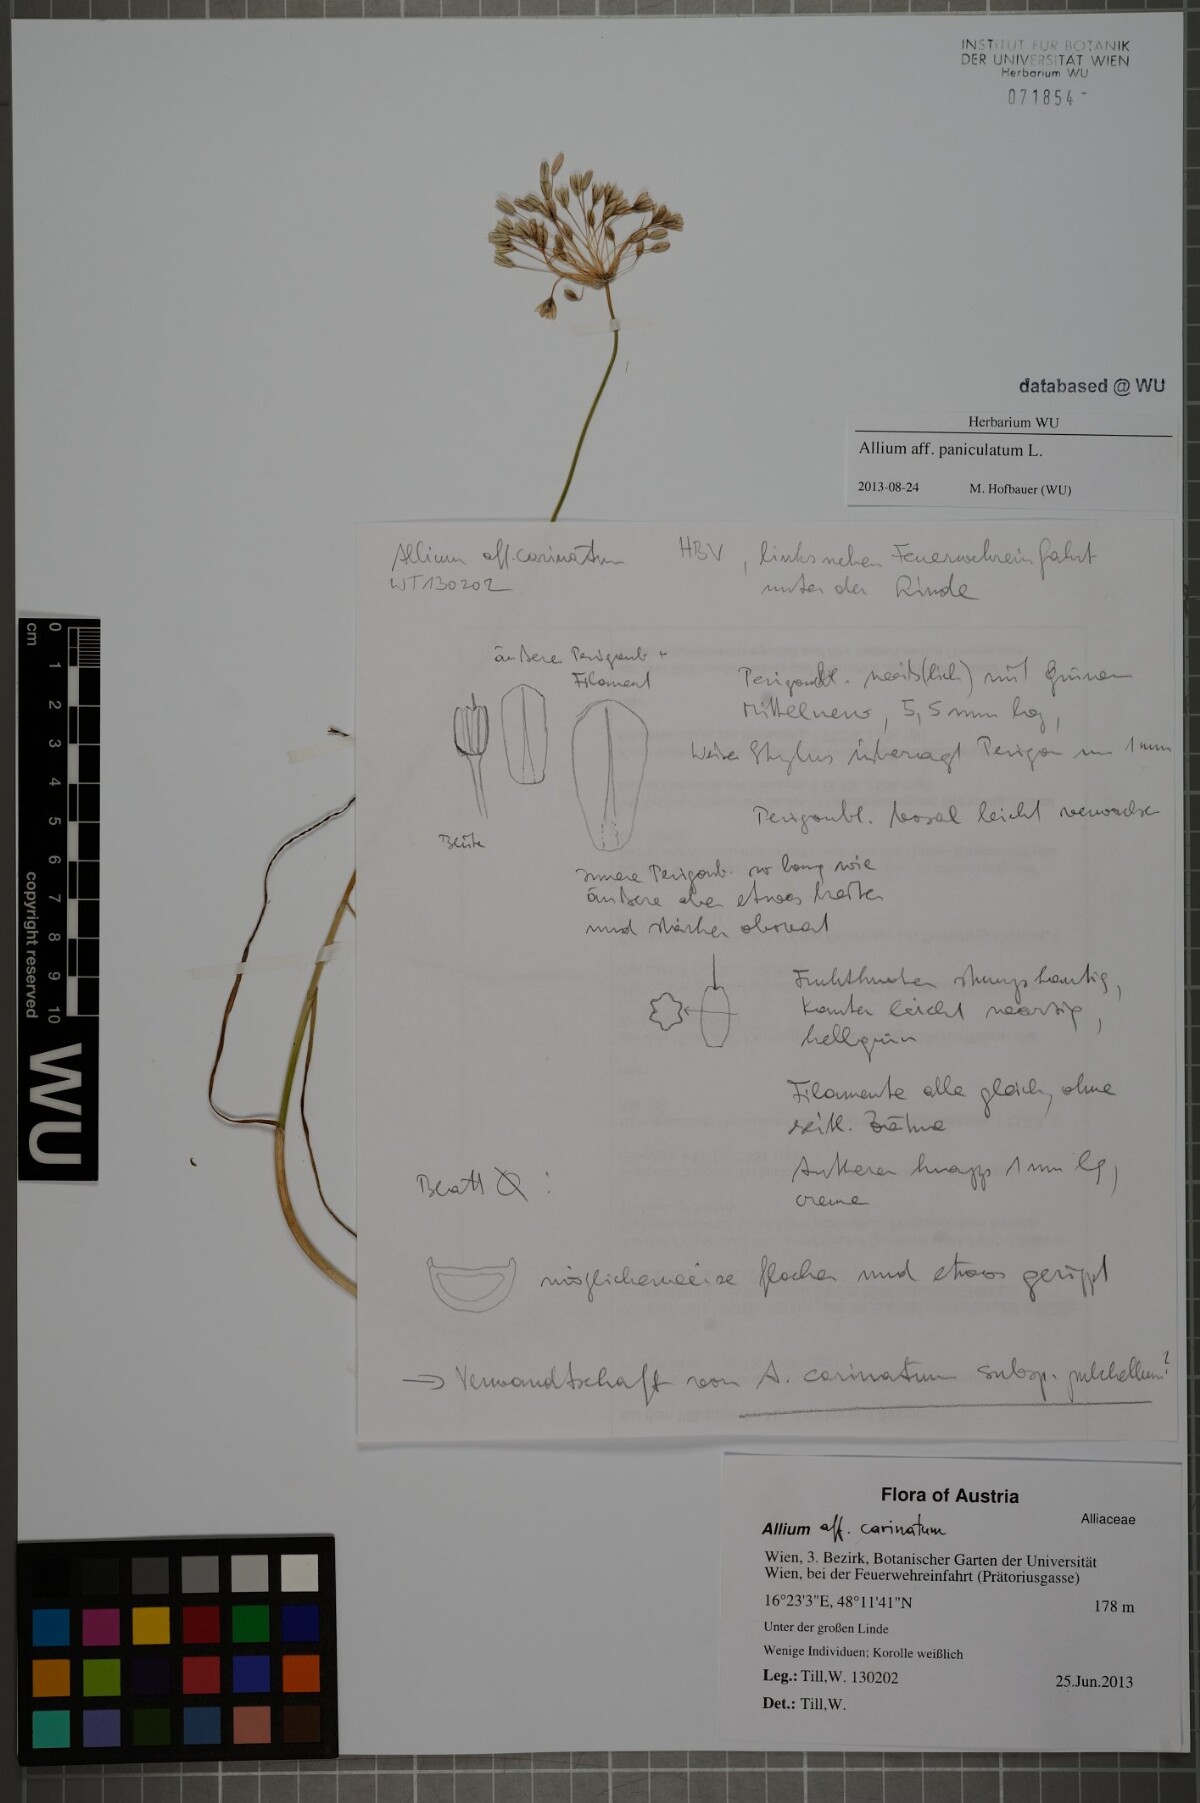 INSTITUT FÜR BOTANIK
DER UNIVERSITÄT WIEN
Herbarium WU
071854
databased @ WU
Herbarium WU
Allium aff. paniculatum L.
2013-08-24 M. Hofbauer (WU)
Allium aff. carinatum HBV, links neben Feuerwehreinfahrt
WT130202 unter der Linde
äußere Perigonb. +
Filament
Perigonbl. weiß(lich) mit grünem
Mittelnerv, 5,5 mm lg,
Stylus überragt Perigon um 1 mm
Perigonbl. basal leicht verwachsen
Blüte
innere Perigonb. so lang wie
äußere aber etwas breiter
und stärker obovat
Fruchtknoten
Kanten leicht warzig,
hellgrün
Filamente alle gleich, ohne
seitl. Zähne
Antheren knapp 1 mm lg,
creme
Blatt :
möglicherweise flacher und etwas gerippt
→ Verwandtschaft von A. carinatum subsp. pulchellum?
cm
0
1
2
3
4
5
6
7
8
9
10
copyright reserved
WU
Flora of Austria
Alliaceae
Allium aff. carinatum
Wien, 3. Bezirk, Botanischer Garten der Universität
Wien, bei der Feuerwehreinfahrt (Prätoriusgasse)
16°23'3"E, 48°11'41"N 178 m
Unter der großen Linde
Wenige Individuen; Korolle weißlich
Leg.: Till,W. 130202 25.Jun.2013
Det.: Till,W.